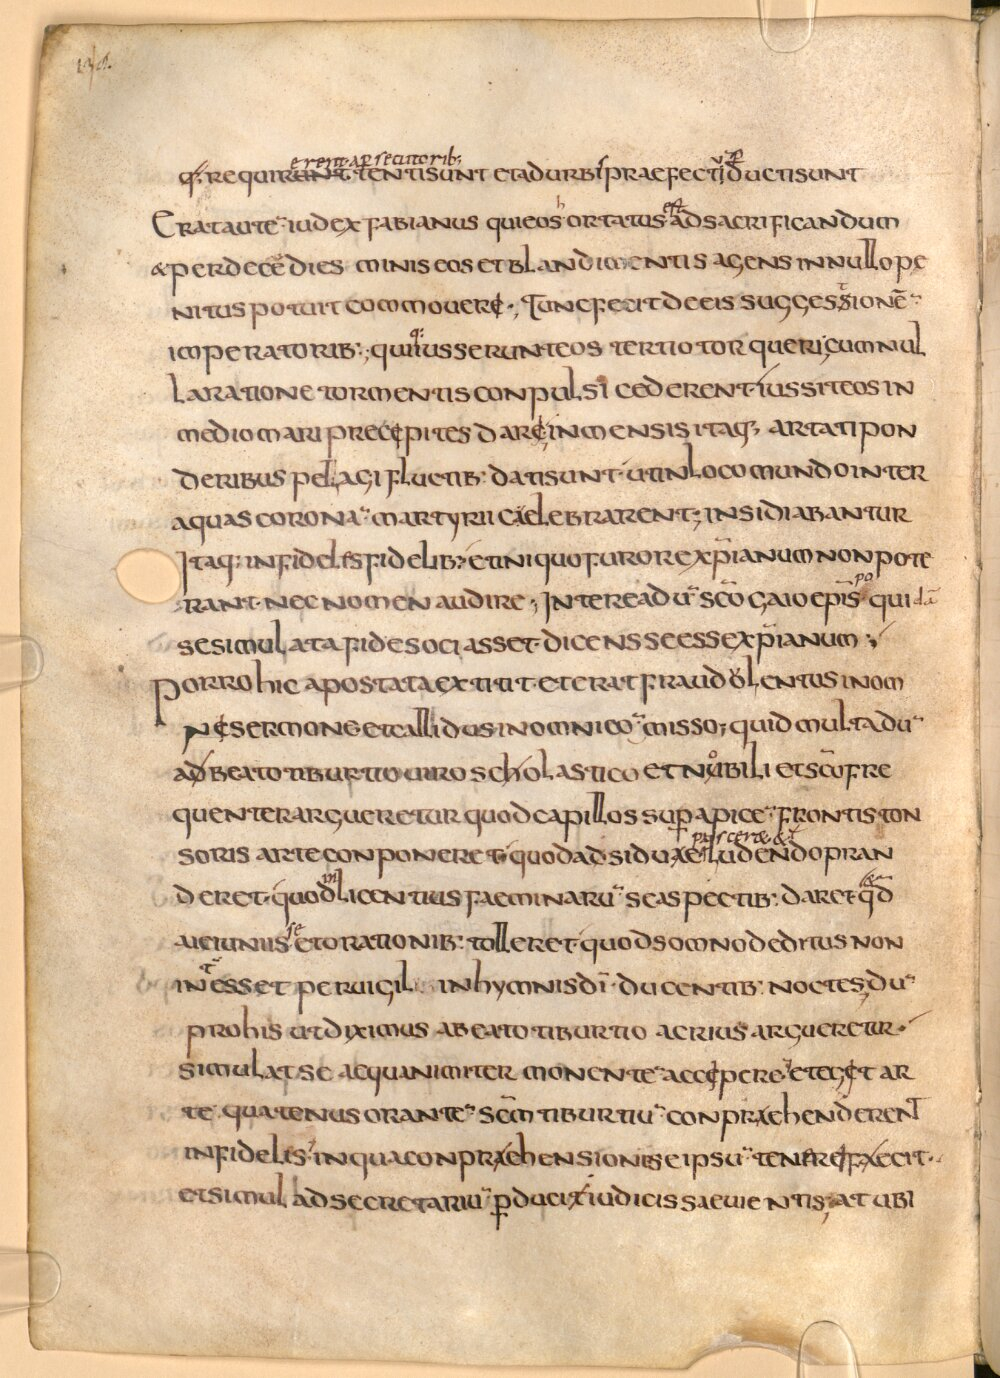 erent a persecutorib;
q; requirunt tenti sunt et ad urbi praefectū ductisunt
Erat autē iudex fabianus qui eos ortatus ÷ ad sacrificandum
& per decē dies minis eos et blandimentis agens in nullo pe
nitus potuit commovere ·, tunc fecit de eis suggessionē
imperatorib:, qui iusserunt eos tertio torqueri, cum nul
la ratione tormentis conpulsi cederent · iussit eos in
medio mari precepites dare, inmensis itaq; artati pon
deribus pelagi fluctib: dati sunt · ut in loco mundo inter
aquas coronā martyrii caelebrarent; insidiabantur
Itaq: infideles fidelib: et iniquo furore xp̄ianum non pote
rant · nec nomen audire ; Interea dū sc̄o gaio ep̄is quidā
se simulata fide sociasset · dicens se esse xp̄ianum ;
Porro hic apostata extitit · et erat fraudulentus in om
ne sermone et callidus in omni cō misso; quid multa dū
a beato tiburtio viro scholastico et nobili et sc̄o fre
quenter argueretur quod capillos sup apicē frontis ton
soris arte conponeret · quod adsiduae ludendo pran
deret · quod licentius faeminarū se aspectib: daret · qd
a ieiuniis et orationib: tolleret · quod somno deditus non
in esset pervigil in hymnis dī ducentib: noctes, dū
pro his ut diximus a beato tiburtio acrius argueretur ·
simulat se aequanimiter monentē accepere, et eget ar
te quatenus orantē sc̄m tiburtiū conpraehenderent
infideles, in qua conpraehensione se ipsū tenere fecit ·
et simul ad secretariū p̄duci iudicis saevientis; at ubi